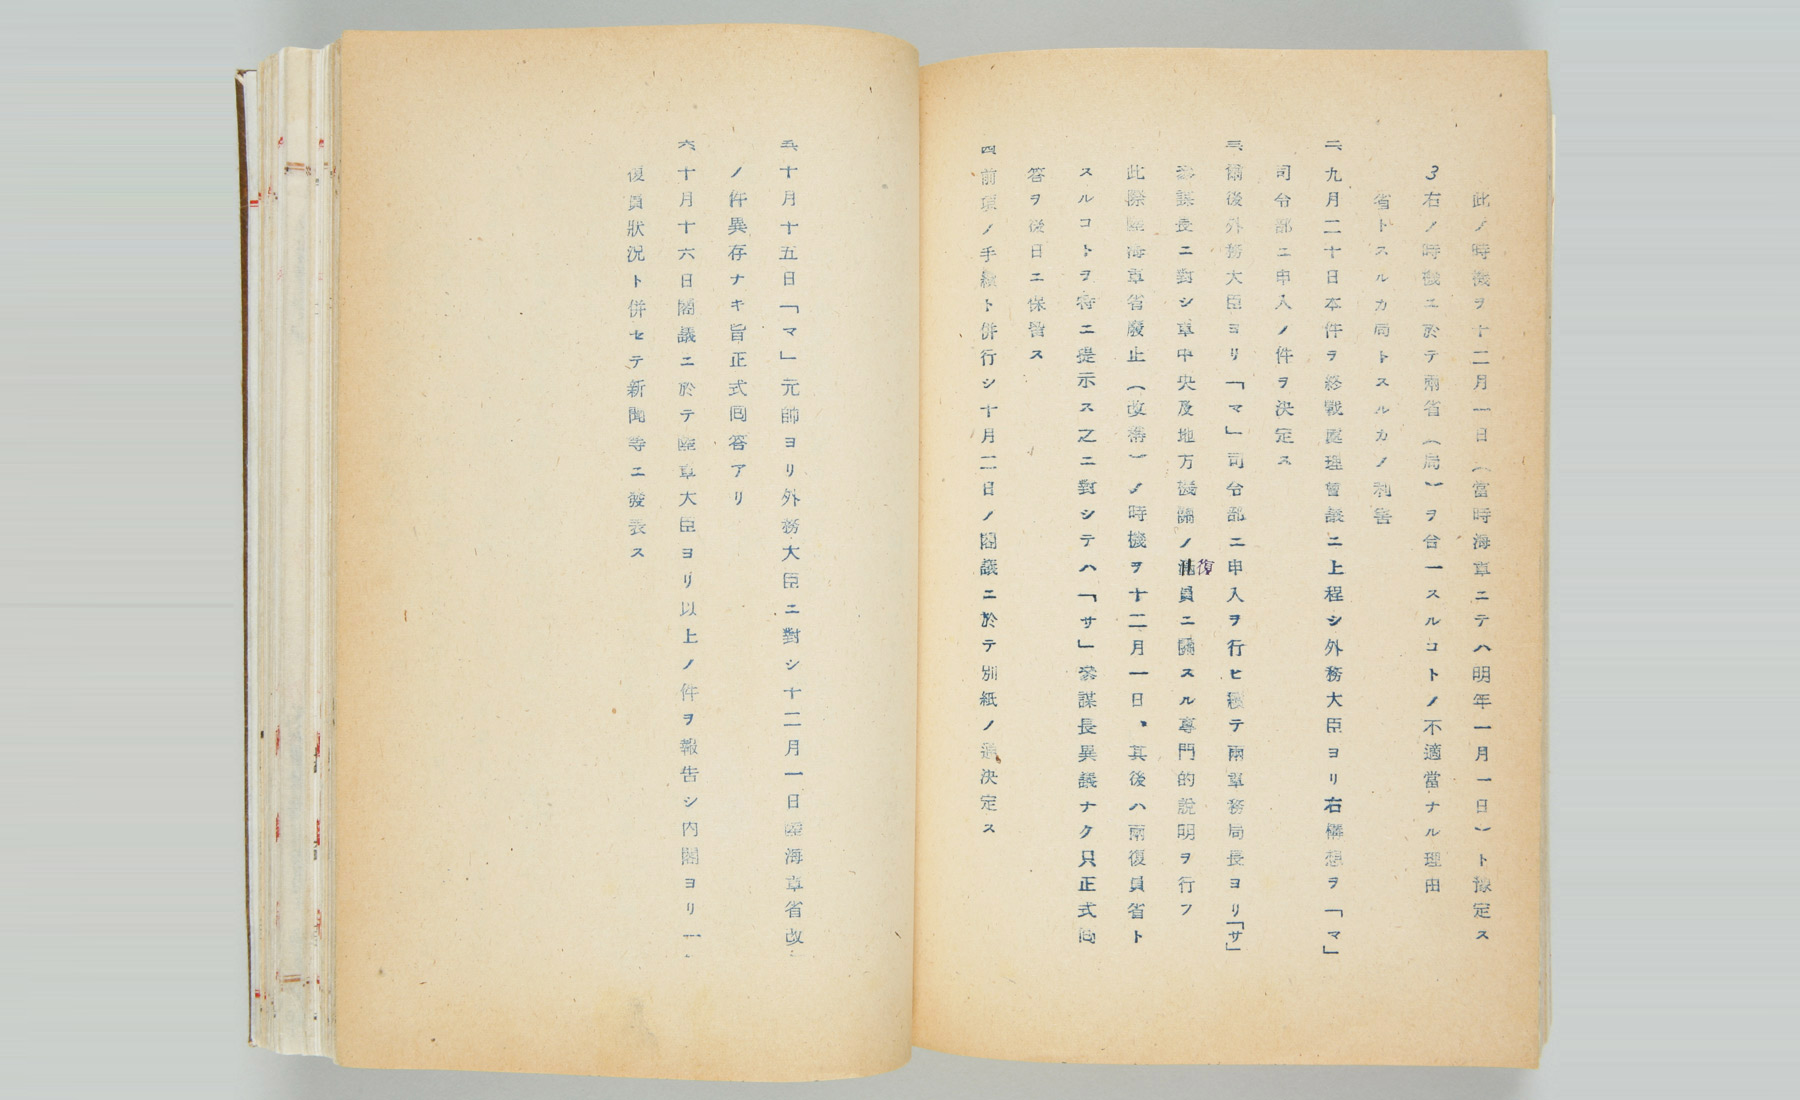 此ノ時機ヲ十二月一日(當時海軍ニテハ明年一月一日)ト豫定ス
3右ノ時機ニ於テ兩省(局)ヲ合一スルコトノ不適當ナル理由
省トスルカ局トスルカノ利害
二、九月二十日本件ヲ終戰處理會議ニ上程シ外務大臣ヨリ右構想ヲ「マ」
司令部ニ申入ノ件ヲ決定ス
三、爾後外務大臣ヨリ「マ」司令部ニ申入ヲ行ヒ續テ兩軍務局長ヨリ「サ」
參謀長ニ對シ軍中央及地方機關ノ復員ニ關スル專門的說明ヲ行フ
此際陸海軍省廢止(改稱)ノ時機ヲ十二月一日、其後ハ兩復員省ト
スルコトヲ特ニ提示ス之ニ對シテハ「サ」參謀長異議ナク只正式囘
答ヲ後日ニ保留ス
四、前項ノ手續ト併行シ十月二日ノ閣議ニ於テ別紙ノ通決定ス
五、十月十五日「マ」元帥ヨリ外務大臣ニ對シ十二月一日陸海軍省改
ノ件異存ナキ旨正式囘答アリ
六、十月十六日閣議ニ於テ陸軍大臣ヨリ以上ノ件ヲ報告シ內閣ヨリ一
復員狀況ト併セテ新聞等ニ發表ス